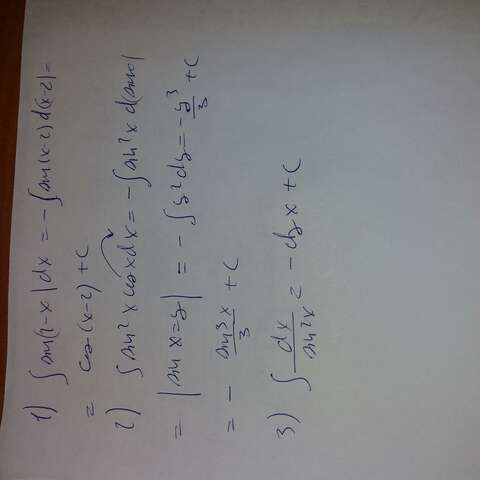 1) ∫ sin(2-x)dx = -∫ sin(x-2)d(x-2) =
= cos(x-2)+C
2) ∫ sin²x cosx dx = -∫ sin²x d(sinx)
= |sin x = y| = -∫ y² dy = -y³/3 + C
= - sin³x/3 + C
3) ∫ dx/sin²x = -ctg x + C